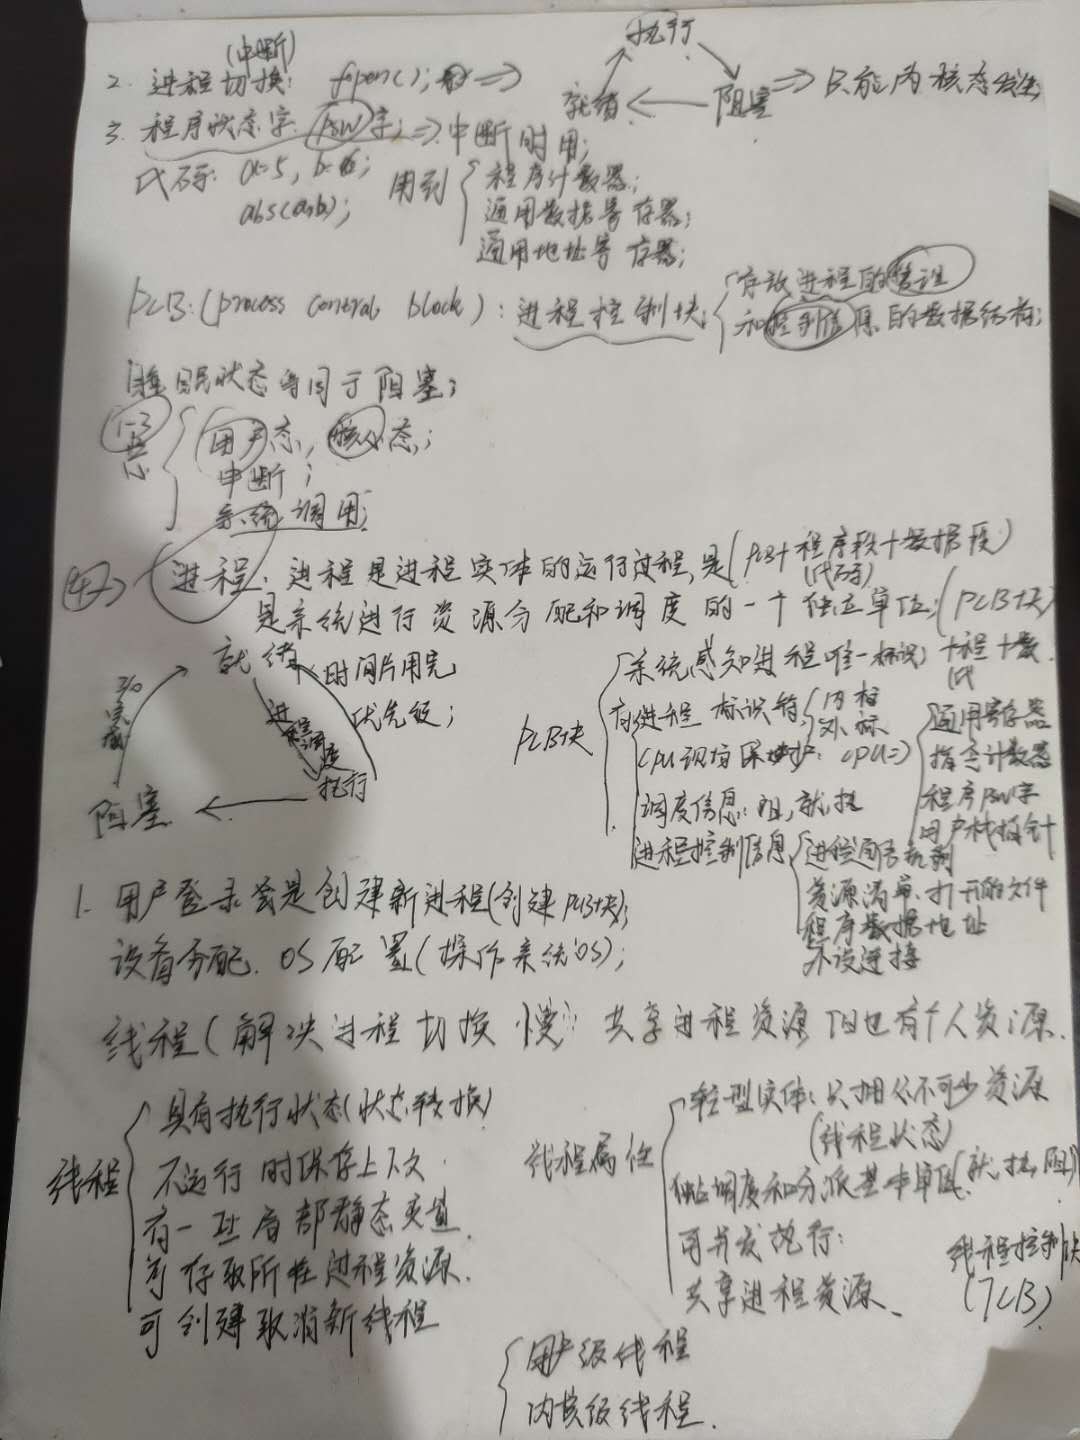 (中断)
执行
2. 进程切换: fopen(); ⇒
就绪 ← 阻塞 ⇒ 只能内核态发生
3. 程序状态字 PSW字; ⇒ 中断时用;
代码: a=5, b=6;
abs(a,b);
用到
程序计数器;
通用数据寄存器;
通用地址寄存器;
PCB: (process control block): 进程控制块;
存放进程的管理
和控制信息的数据结构;
睡眠状态等同于阻塞;
1-3
用户态, 核心态;
中断;
系统调用;
进程: 进程是进程实体的运行过程, 是(PCB+程序段+数据段)
(代码)
是系统进行资源分配和调度的一个独立单位; (PCB块)
就绪
时间片用完
优先级;
进程调度
执行
阻塞
PCB块
系统感知进程唯一标识;
有进程标识符
内标
外标
CPU现场保护: CPU⇒
通用寄存器
指令计数器
程序PSW字
用户栈指针
调度信息: 阻,就,执
进程控制信息
进程通信机制
资源清单, 打开的文件
程序数据地址
外设连接
1. 用户登录会是创建新进程(创建PCB块);
设备分配. OS配置(操作系统OS);
线程(解决进程切换慢); 共享进程资源 但也有个人资源.
线程
具有执行状态(状态转换)
不运行时保存上下文.
有一些局部静态变量.
可存取所在进程资源.
可创建取消新线程
线程属性
轻型实体: 只拥必不可少资源
(线程状态)
独立调度和分派基本单位. (就,执,阻)
可并发执行:
共享进程资源.
线程控制块
(TCB)
用户级线程
内核级线程.